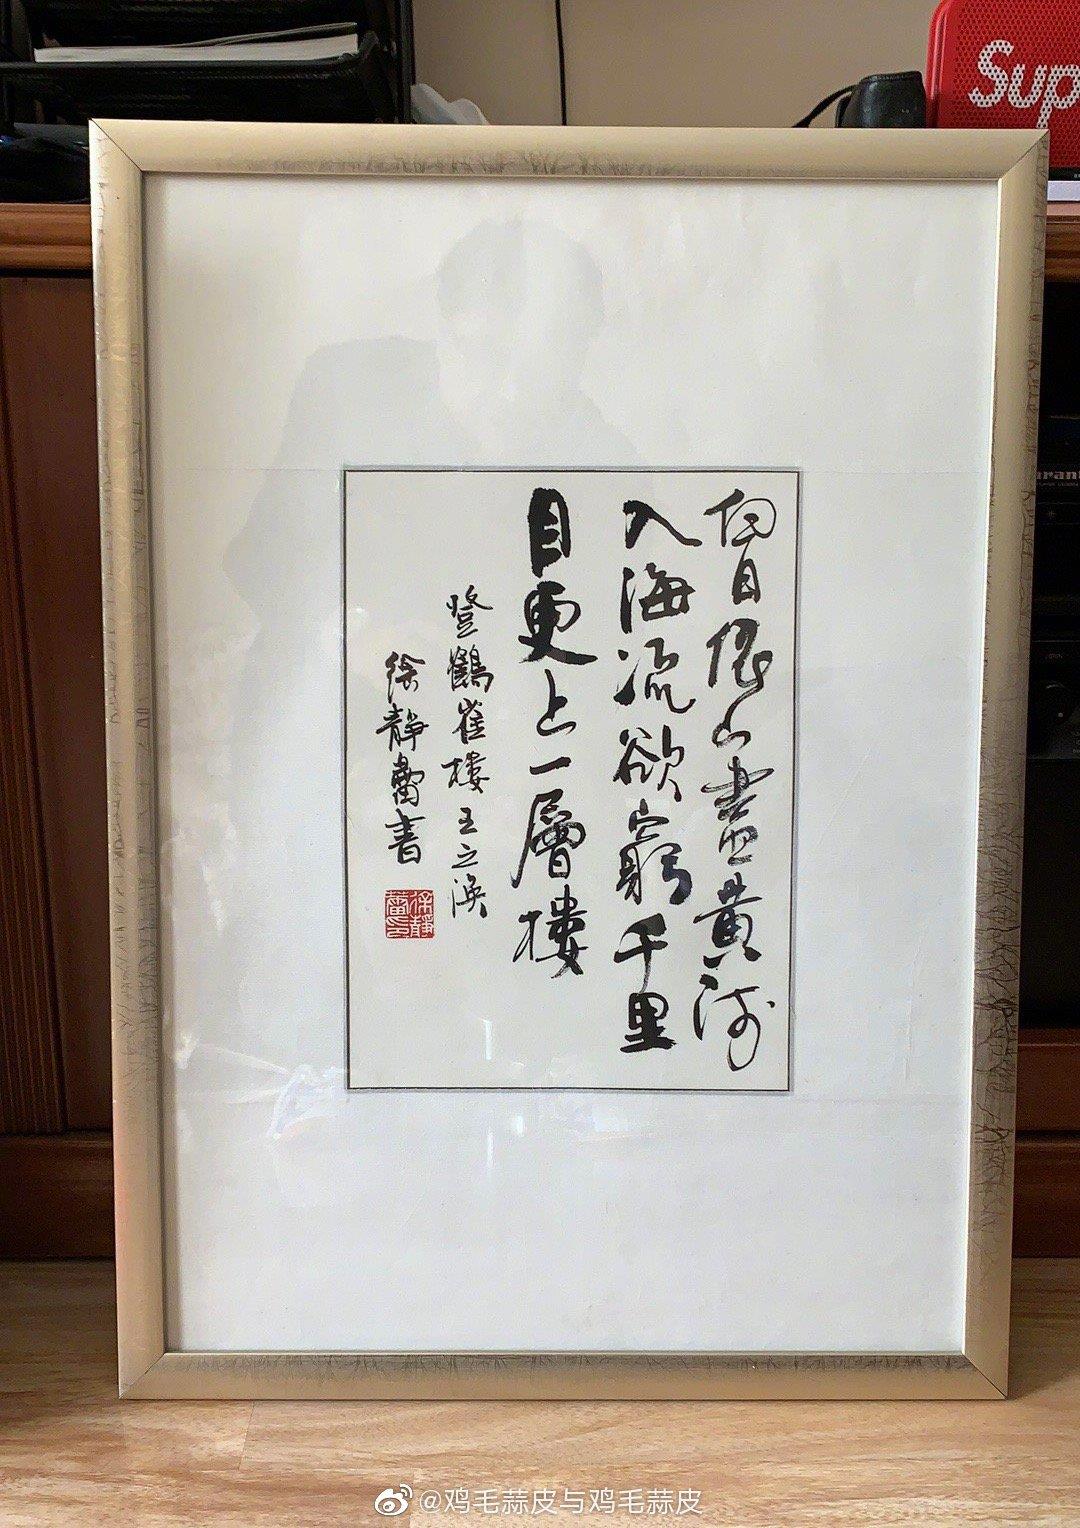 白日依山盡黄河
入海流欲窮千里
目更上一層樓
登鶴崔樓王之渙
徐靜蕾書
徐靜蕾印
Sup
arant
@鸡毛蒜皮与鸡毛蒜皮